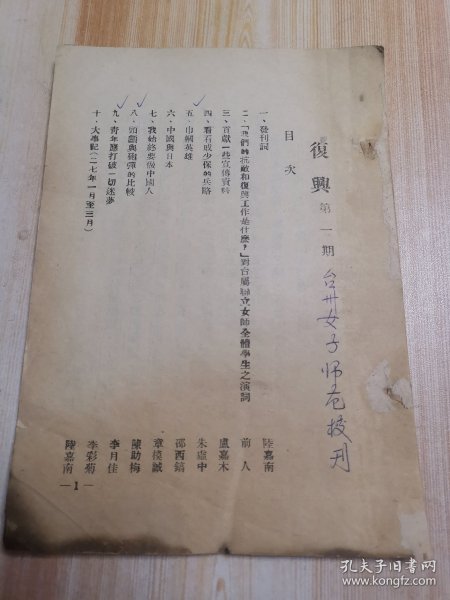 復興 第一期
台州女子师范校刊
目次
一、發刊詞 陸嘉南
二、「我們的抗敵和復興工作是什麼？」對台屬聯立女師全體學生之演詞 前人
三、貢獻一些宣傳資料 盧嘉木
四、看看戚少保的兵略 朱虛中
五、巾幗英雄 邵西鎬
六、中國與日本 章模誠
七、我始終要做中國人 陳助梅
八、頭顱與砲彈的比較 李月佳
九、青年應打破一切迷夢 李彩菊
十、大事記（二七年一月至三月） 陸嘉南
—1—
孔夫子旧书网
www.kongfz.com